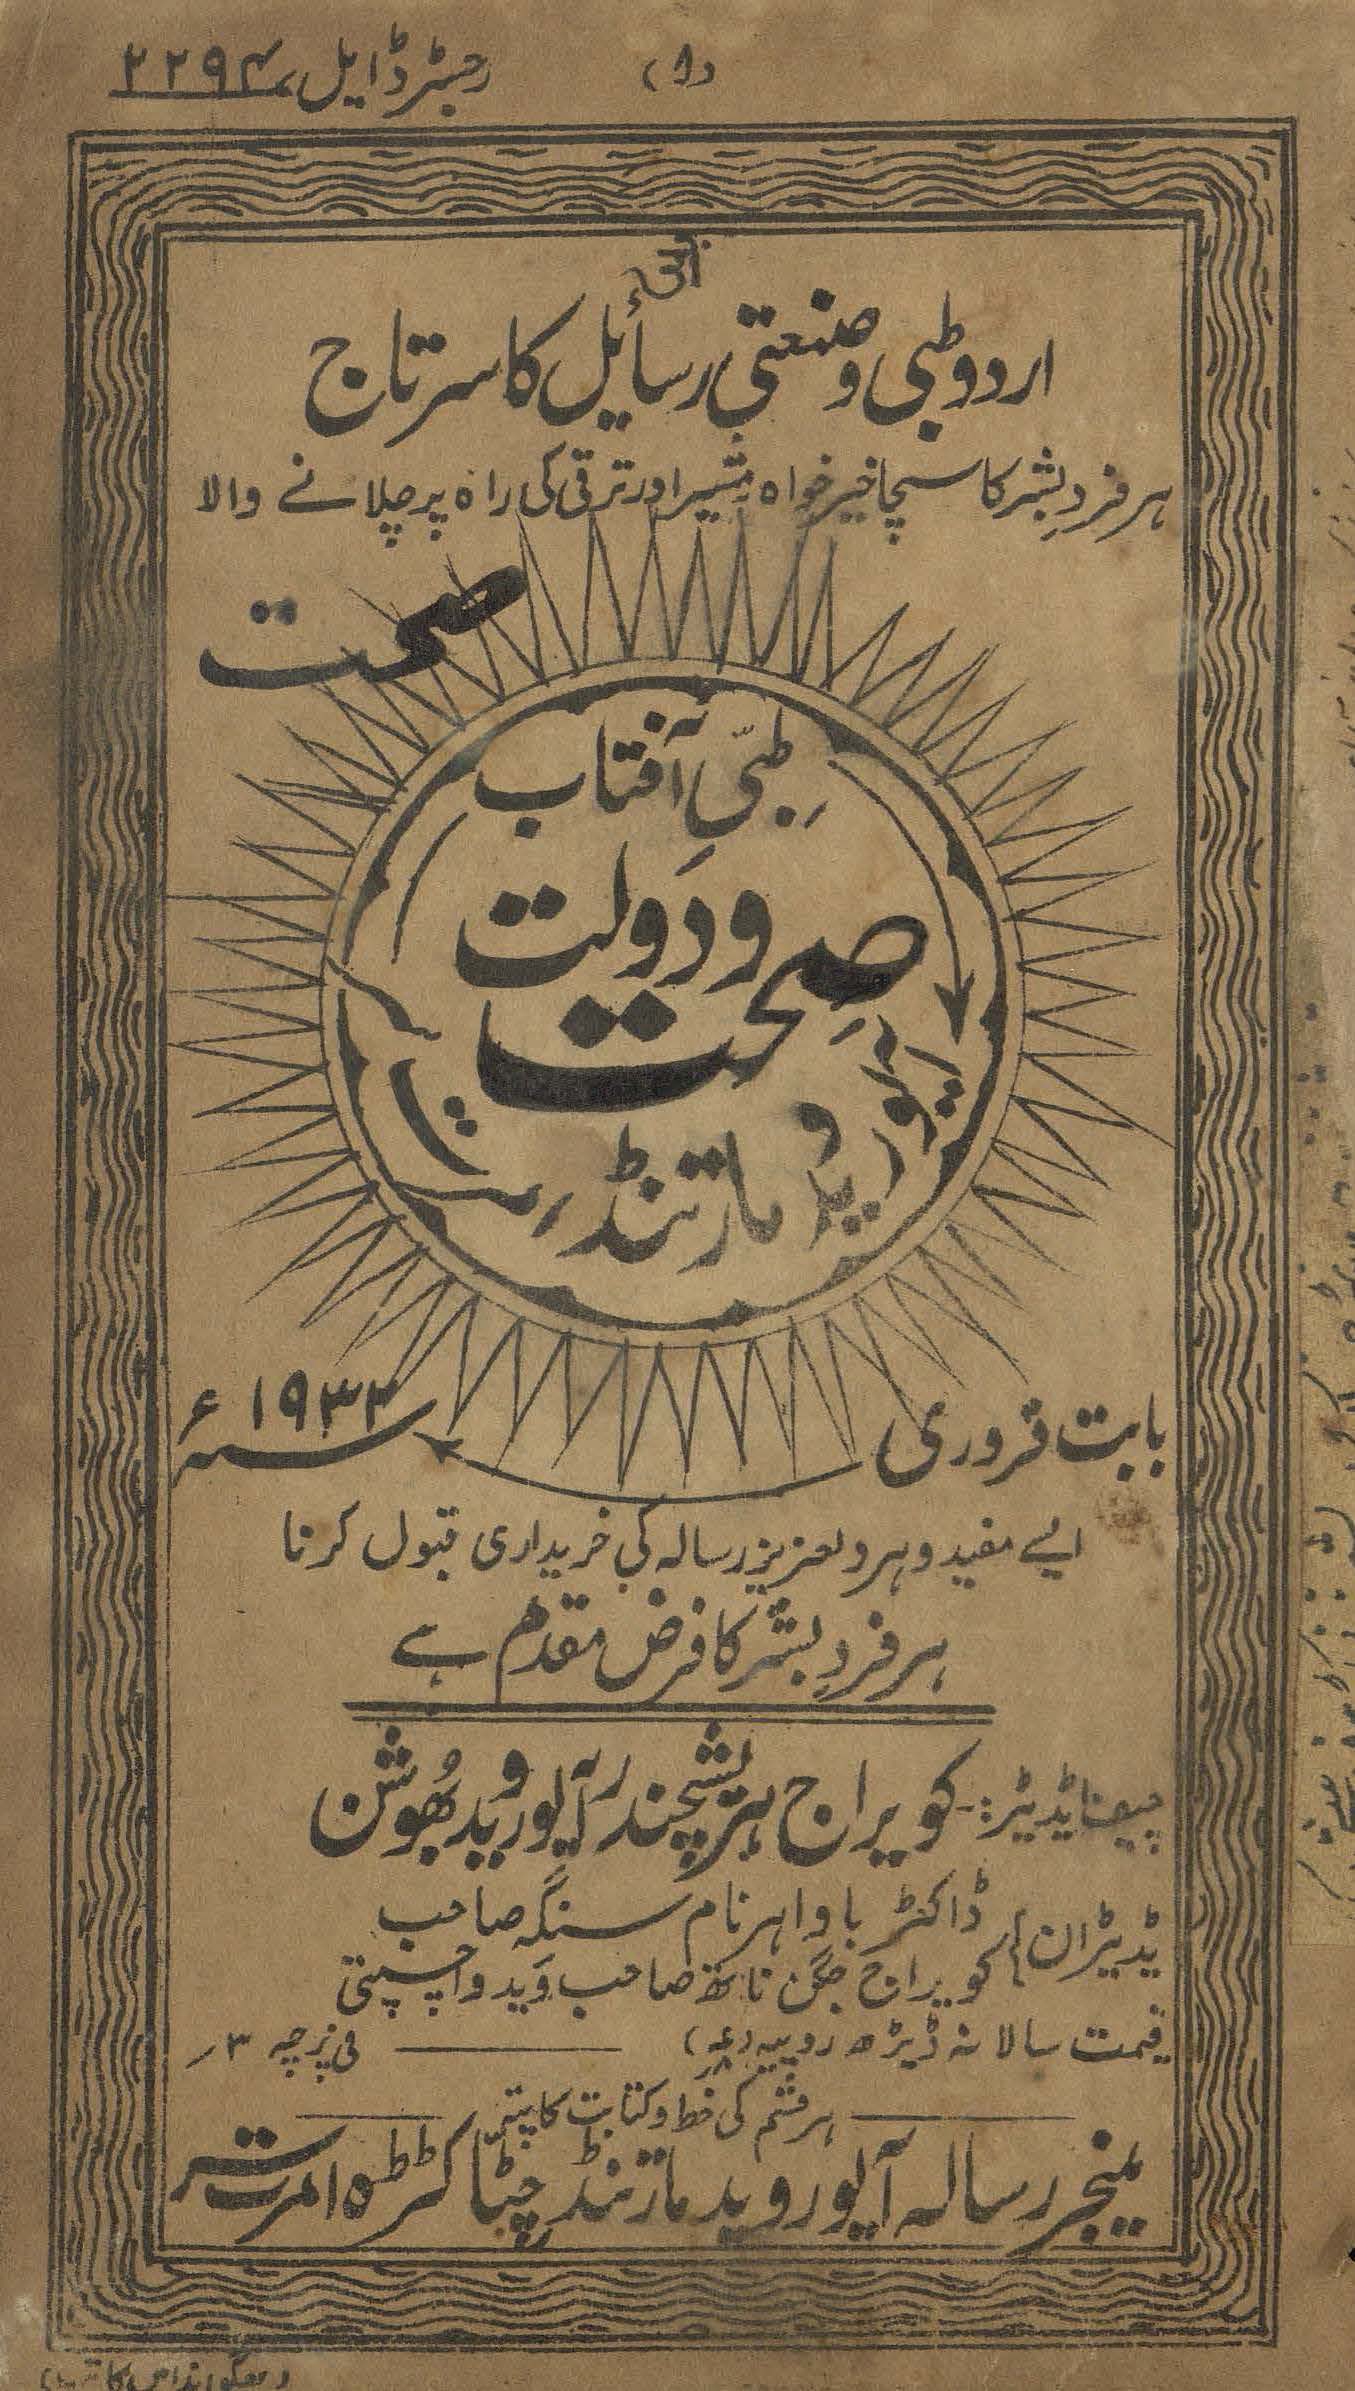 رجسٹرڈ ایل
(۱)
اردو طبی و صنعتی رسائیل کا سرتاج
ہر فردِ بشر کا سچا خیر خواہ مشیر اور ترقی کی راہ پر چلانے والا
صحت
طبّی آفتاب
صحت و دولت
صحت
آیور وید مارتنڈ امرتسر
بابت فروری سنہ ۱۹۳۲ ء
ایسے مفید و ہر دلعزیز رسالہ کی خریداری قبول کرنا
ہر فردِ بشر کا فرض مقدم ہے
چیف ایڈیٹر:- کویراج ہریشچندر آیور وید بھوشن
یڈیٹران { ڈاکٹر باوا ہرنام سنگہ صاحب
کویراج جگن ناتھ صاحب وید واچسپتی
قیمت سالانہ ڈیڑھ روپیہ فی پرچہ ۳؍
ہر قسم کی خط و کتابت کا پتہ
مینجر رسالہ آیور وید مارتنڈ چٹا کٹڑہ امرتسر